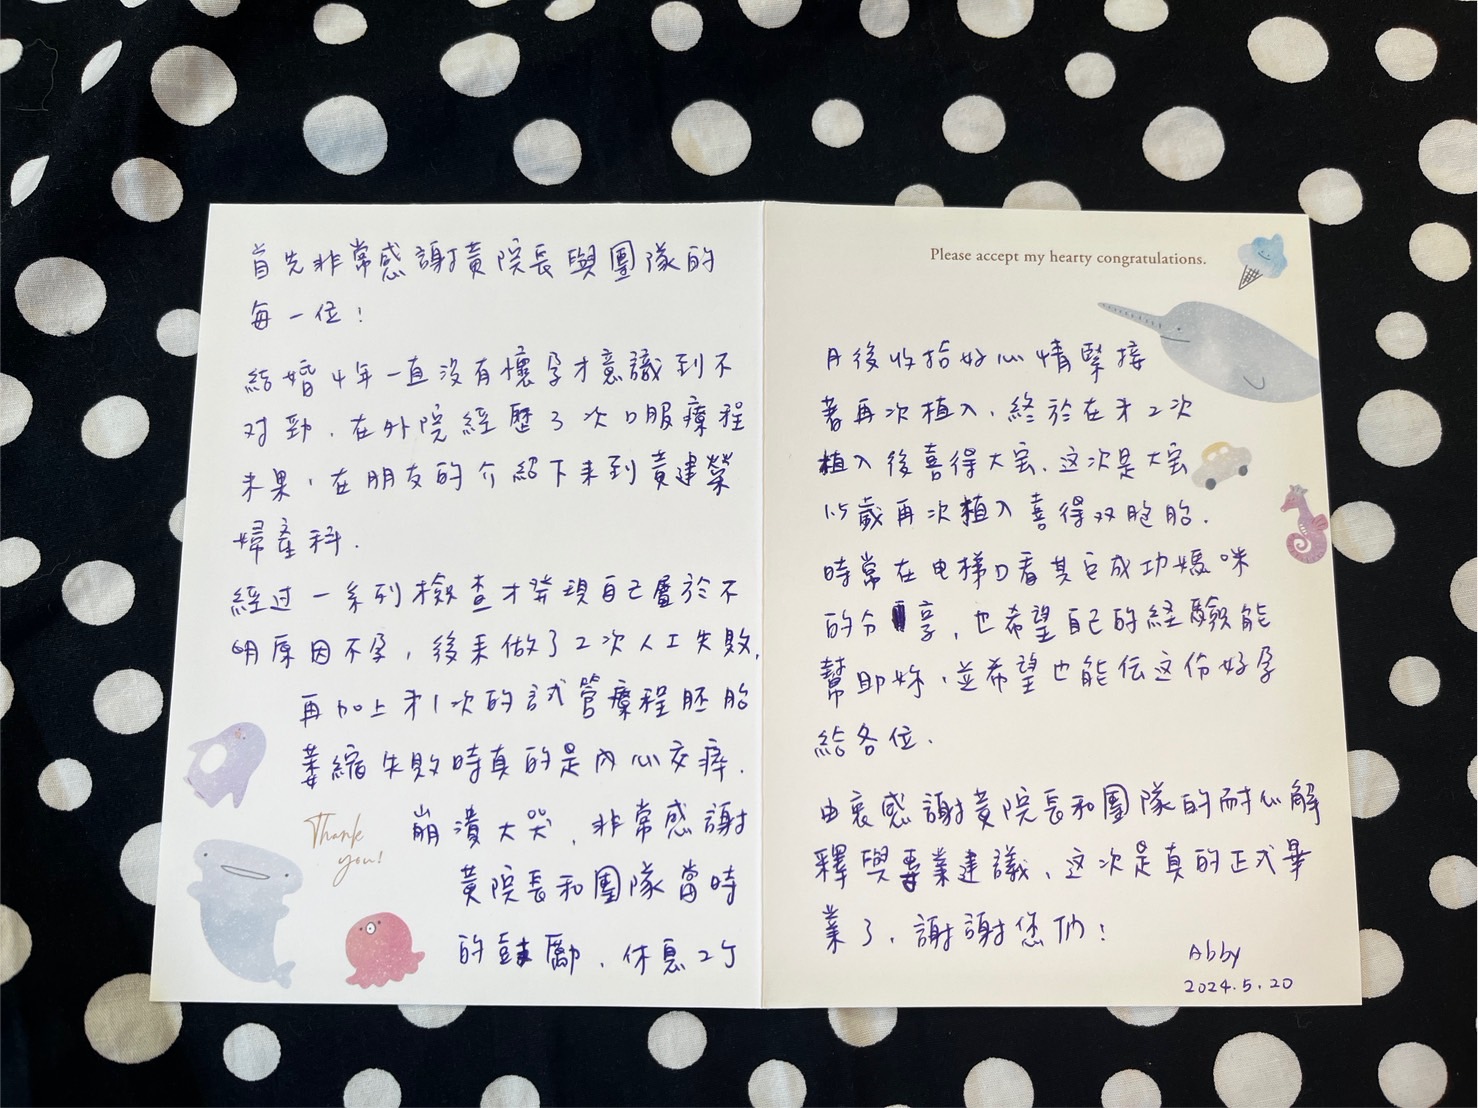 首先非常感謝黃院長與團隊的
每一位!
結婚4年一直沒有懷孕才意識到不
对勁.在外院經歷3次口服療程
未果,在朋友的介紹下来到黃建榮
婦產科.
經过一系列檢查才發現自己屬於不
明原因不孕,後来做了2次人工失敗,
再加上才1次的試管療程胚胎
萎縮失敗時真的是內心交瘁.
崩潰大哭,非常感謝
黃院長和團隊當時
的鼓勵,休息2个
Thank
you!
Please accept my hearty congratulations.
月後收拾好心情緊接
著再次植入,終於在才2次
植入後喜得大宝.这次是大宝
1.5歲再次植入喜得双胞胎.
時常在电梯口看其它成功媽咪
的分享,也希望自己的経驗能
幫助妳,並希望也能伝这份好孕
給各位.
由衷感謝黃院長和團隊的耐心解
釋與專業建議,这次是真的正式畢
業了,謝謝您们!
Abby
2024.5.20